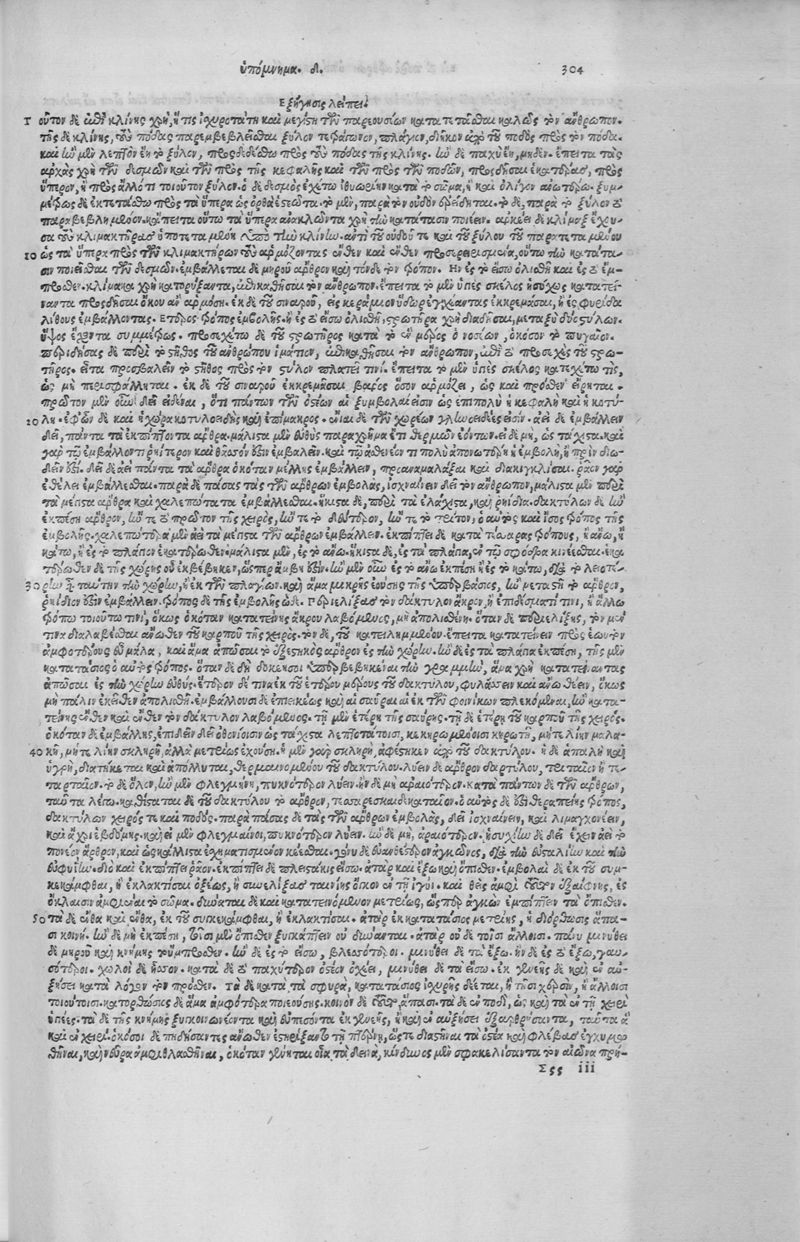 ὑπόμνημα. Δ. 304
Εξήγησις λείπει.
οὗτον δὲ ἐπὶ κλίνης χρὴ, ἥτις ἰσχυροτάτη καὶ μεγίστη τῶν παρεουσῶν κατατετάσθαι καλῶς τὸν ἄνθρωπον.
τῆς δὲ κλίνης, τοὺς πόδας παρεμβεβλεῖσθαι ξύλον τετράγωνον, πλάγιον, διῆκον ἀπὸ τοῦ ποδὸς πρὸς τὸν πόδα.
καὶ ἢν μὲν λεπτὸν ἔῃ τὸ ξύλον, προσδεδέσθω πρὸς τοὺς πόδας τῆς κλίνης. ἢν δὲ παχὺ ἔῃ, μηδέν. ἔπειτα τὰς
ἀρχὰς χρὴ τῶν δεσμῶν καὶ τῶν πρὸς τῆς κεφαλῆς καὶ τῶν πρὸς τῶν ποδῶν, προσδῆσαι ἑκατέρας, πρὸς
ὕπερον, ἢ πρὸς ἄλλό τι τοιοῦτον ξύλον. ὁ δὲ δεσμὸς ἐχέτω ἰθυωρίην κατὰ τὸ σῶμα, ἢ καὶ ὀλίγον ἀνωτέρω. ξυμ-
μέτρως δὲ ἐκτετάσθω πρὸς τὰ ὕπερα ὡς ὀρθὰ ἑστεῶτα. τὸ μὲν, παρὰ τὸν οὐδὸν ἐρείδηται. τὸ δὲ, παρὰ τὸ ξύλον τὸ
παραβεβλημένον. κἄπειτα οὕτω τὰ ὕπερα ἀνακλῶντα χρὴ τὴν κατάτασιν ποιέειν. ἀρκέει δὲ κλίμαξ ἔχου-
σα τοὺς κλιμακτῆρας ὑποτεταμένη ὑπὸ τὴν κλίνην. ἀντὶ τοῦ οὐδοῦ τε καὶ τοῦ ξύλου τοῦ παρατεταμένου
10 ὡς τὰ ὕπερα πρὸς τῶν κλιμακτήρων τοὺς ἁρμόζοντας ἔνθεν καὶ ἔνθεν προσερειδόμενα, οὕτω τὴν κατάτα-
σιν ποιέεσθαι τῶν δεσμῶν. ἐμβάλλεται δὲ μηροῦ ἄρθρον καὶ τόνδε τὸν τρόπον. Ην ἐς τὸ ἔσω ὀλίσθῃ καὶ ἐς τὸ ἔμ-
προσθεν. κλίμακα χρὴ κατορύξαντα, ἐπικαθῆσαι τὸν ἄνθρωπον. ἔπειτα τὸ μὲν ὑγιὲς σκέλος ἡσύχως κατατεί-
ναντα προσδῆσαι ὅκου ἂν ἁρμόσῃ. ἐκ δὲ τοῦ σιναροῦ, εἰς κεράμιον ὕδωρ ἐγχέαντας ἐκκρεμάσαι, ἢ ἐς σφυρίδα
λίθους ἐμβάλλοντας. Ετερος τρόπος ἐμβολῆς. ἢν ἐς τὸ ἔσω ὀλισθῇ, στρωτῆρα χρὴ διαδῆσαι, μεταξὺ δύο στύλων.
ὕψος ἔχοντα συμμέτρως. προσεχέτω δὲ τοῦ στρωτῆρος κατὰ τὸ ἓν μέρος ὁ νοσέων, ὁκόσον τὸ πυγαῖον.
περιδήσας δὲ περὶ τὸ στῆθος τοῦ ἀνθρώπου ἱμάτιον, ἐπικαθῆσαι τὸν ἄνθρωπον, ἐπὶ τὸ προσεχὲς τοῦ στρω-
τῆρος. εἶτα προσβαλεῖν τὸ στῆθος πρὸς τὸν στύλον πλατεῖ τινί. ἔπειτα τὸ μὲν ὑγιὲς σκέλος κατεχέτω τὶς,
ὡς μὴ περισφάλληται. ἐκ δὲ τοῦ σιναροῦ ἐκκρεμᾶσαι βάρος ὅσον ἁρμόζει, ὡς καὶ πρόσθεν εἴρηται.
πρῶτον μὲν οὖν δεῖ εἰδέναι, ὅτι πάντων τῶν ὀστέων αἱ ξυμβολαί εἰσιν ὡς ἐπιπολὺ ἡ κεφαλὴ καὶ ἡ κοτύ-
20 λη. ἐφ' ὧν δὲ καὶ ἡ χώρα κοτυλοειδὴς καὶ ἐπίμακρος. ἔνιαι δὲ τῶν χωρίων γληνοειδέες εἰσίν. ἀεὶ δὲ ἐμβάλλειν
δεῖ, πάντα τὰ ἐκπίπτοντα ἄρθρα. μάλιστα μὲν εὐθὺς παραχρῆμα ἔτι θερμῶν ἐόντων. εἰ δὲ μὴ, ὡς τάχιστα. καὶ
γὰρ τῷ ἐμβάλλοντι ῥηΐτερον καὶ θᾶσσόν ἐστιν ἐμβαλεῖν. καὶ τῷ ἀσθενέοντι πολὺ ἀπονωτέρη ἡ ἐμβολὴ, ἢ πρὶν διω-
δεῖν ἐστί. δεῖ δὲ ἀεὶ πάντα τὰ ἄρθρα ὁκόταν μέλλῃς ἐμβάλλειν, προαναμαλάξαι καὶ διακιγκλίσαι. ῥᾷον γὰρ
ἐθέλει ἐμβάλλεσθαι. παρὰ δὲ πάσας τὰς τῶν ἄρθρων ἐμβολὰς, ἰσχναίνειν δεῖ τὸν ἄνθρωπον, μάλιστα μὲν περὶ
τὰ μέγιστα ἄρθρα καὶ χαλεπώτατα ἐμβάλλεσθαι. ἥκιστα δὲ, περὶ τὰ ἐλάχιστα, καὶ ῥηΐδια. δακτύλων δὲ ἢν
ἐκπέσῃ ἄρθρον, ἤν τε τὸ πρῶτον τῆς χειρὸς, ἤν τε τὸ δεύτερον, ἤν τε τὸ τρίτον, ὁ αὐτὸς καὶ ἴσος τρόπος τῆς
ἐμβολῆς. χαλεπώτερα μὲν ἀεὶ τὰ μέγιστα τῶν ἄρθρων ἐμβάλλειν. ἐκπίπτει δὲ κατὰ τέσσαρας τρόπους, ἢ ἄνω, ἢ
κάτω, ἢ ἐς τὸ πλάγιον ἑκατέρωθεν. μάλιστα μὲν, ἐς τὸ ἄνω. ἥκιστα δὲ, ἐς τὰ πλάγια, ἐν τῷ σφόδρα κινέεσθαι. ἑκα-
τέρωθεν δὲ τῆς χώρης οὗ ἐκβέβηκεν, ὥσπερ ἄμβη ἐστίν. ἢν μὲν οὖν ἐς τὸ ἄνω ἐκπέσῃ ἢ ἐς τὸ κάτω, διὰ τὸ λειοτέ-
30 ρην εἶναι ταύτην τὴν χώρην, ἢ ἐκ τῶν πλαγίων. καὶ ἅμα μικρῆς ἐούσης τῆς ὑπερβάσιος, ἢν μεταστῇ τὸ ἄρθρον,
ῥηΐδιόν ἐστιν ἐμβάλλειν. τρόπος δὲ τῆς ἐμβολῆς ὅδε. Περιελίξας τὸν δάκτυλον ἄκρον, ἢ ἐπιδέσματί τινι, ἢ ἄλλῳ
τρόπῳ τοιούτῳ τινὶ, ὅκως ὁκόταν κατατείνῃς ἄκρου λαβόμενος, μὴ ἀπολισθάνῃ. ὅταν δὲ περιελίξῃς, τὸν μέν
τινα διαλαβέσθαι ἄνωθεν τοῦ καρποῦ τῆς χειρός. τὸν δὲ, τοῦ κατειλημμένου. ἔπειτα κατατείνειν πρὸς ἑωυτὸν
ἀμφοτέρους εὖ μάλα, καὶ ἅμα ἀπῶσαι τὸ ἐξεστηκὸς ἄρθρον ἐς τὴν χώρην. ἢν δὲ ἐς τὰ πλάγια ἐκπέσῃ, τῆς μὲν
κατατάσιος ὁ αὐτὸς τρόπος. ὅταν δὲ δὴ δοκέῃ σοι ὑπερβεβηκέναι τὴν γραμμὴν, ἅμα χρὴ κατατείναντας
ἀπῶσαι ἐς τὴν χώρην εὐθύς. ἕτερον δέ τινα ἐκ τοῦ ἑτέρου μέρους τοῦ δακτύλου, φυλάσσειν καὶ ἀνωθέειν, ὅκως
μὴ πάλιν ἐκεῖθεν ἀπολισθῇ. ἐμβάλλουσι δὲ ἐπιεικέως καὶ αἱ σαῦραι αἱ ἐκ τῶν φοινίκων πλεκόμεναι, ἢν κατα-
τείνῃς ἔνθεν καὶ ἔνθεν τὸν δάκτυλον λαβόμενος. τῇ μὲν ἑτέρῃ τῆς σαύρης. τῇ δὲ ἑτέρῃ τοῦ καρποῦ τῆς χειρός.
ὁκόταν δὲ ἐμβάλλῃς, ἐπιδεῖν δεῖ ὀθονίοισιν ὡς τάχιστα λεπτοτάτοισι, κεκηρωμένοισι κηρωτῇ, μήτε λίην μαλα-
40 κῇ, μήτε λίην σκληρῇ, ἀλλὰ μετρίως ἐχούσῃ. ἡ μὲν γὰρ σκληρὴ, ἀφέστηκεν ἀπὸ τοῦ δακτύλου. ἡ δὲ ἁπαλὴ καὶ
ὑγρὴ, διατήκεται καὶ ἀπόλλυται, θερμαινομένου τοῦ δακτύλου. λύειν δὲ ἄρθρον δακτύλου, τριταῖον ἢ τε-
ταρταῖον. τὸ δὲ ὅλον, ἢν μὲν φλεγμήνῃ, πυκνότερον λύειν. ἢν δὲ μὴ, ἀραιότερον. κατὰ πάντων δὲ τῶν ἄρθρων,
ταῦτα λέγω. καθίσταται δὲ τοῦ δακτύλου τὸ ἄρθρον, τεσσαρεσκαιδεκαταῖον. ὁ αὐτὸς δέ ἐστι θεραπείης τρόπος,
δακτύλων χειρός τε καὶ ποδός. παρὰ πάσας δὲ τὰς τῶν ἄρθρων ἐμβολὰς, δεῖ ἰσχναίνειν, καὶ λιμαγχονέειν,
καὶ ἄχρι ἑβδόμης. καὶ εἰ μὲν φλεγμαίνοι, πυκνότερον λύειν. ἢν δὲ μὴ, ἀραιότερον. ἡσυχίην δὲ δεῖ ἔχειν ἀεὶ τὸ
πονέον ἄρθρον, καὶ ὡς κάλλιστα ἐσχηματισμένον κέεσθαι. γόνυ δὲ εὐηθέστερον ἀγκῶνος, διὰ τὴν εὐσταλίην καὶ τὴν
εὐφυΐην. διὸ καὶ ἐκπίπτει ῥᾷον. ἐκπίπτει δὲ πλειστάκις ἔσω. ἀτὰρ καὶ ἔξω καὶ ὄπισθεν. ἐμβολαὶ δὲ ἐκ τοῦ συγ-
κεκάμφθαι, ἢ ἐκλακτίσαι ὀξέως, ἢ συνελίξας ταινίης ὄγκον ἐν τῇ ἰγνύῃ. καὶ θεὶς ἀμφὶ τοῦτον ἐξαίφνης, ἐς
ὄκλασιν ἀφιέναι τὸ σῶμα. δύναται δὲ καὶ κατατεινόμενον μετρίως, ὥσπερ ἀγκὼν ἐμπίπτειν τὰ ὄπισθεν.
50 τὰ δὲ ἔνθα καὶ ἔνθα, ἐκ τοῦ συγκεκάμφθαι, ἢ ἐκλακτίσαι. ἀτὰρ ἐκ κατατάσιος μετρίης, ἡ διόρθωσις ἅπα-
σι κοινή. ἢν δὲ μὴ ἐκπέσῃ, τοῖσι μὲν ὄπισθεν ξυγκάμπτειν οὐ δύνανται. ἀτὰρ οὐδὲ τοῖσι ἄλλοισι. πάνυ μινύθει
δὲ μηροῦ καὶ κνήμης τοὔμπροσθεν. ἢν δὲ ἐς τὸ ἔσω, βλαισότεροι. μινύθει δὲ τὰ ἔξω. ἢν δὲ ἐς τὸ ἔξω, γαυ-
σότεροι. χωλοὶ δὲ ἧσσον. κατὰ δὲ τὸ παχύτερον ὀστέον ὀχέει, μινύθει δὲ τὰ εἴσω. ἐκ γενεῆς δὲ καὶ ἐν αὐ-
ξήσει κατὰ λόγον τὸν πρόσθεν. Τὰ δὲ κατὰ τὰ σφυρὰ, κατατάσιος ἰσχυρῆς δέεται, ἢ τῇσι χερσὶν, ἢ ἄλλοισι
τοιούτοισι. κατορθώσιος δὲ ἅμα ἀμφότερα ποιεούσης. κοινὸν δὲ τοῦτο ἅπασι. τὰ δὲ ἐν ποδὶ, ὡς καὶ τὰ ἐν τῇ χειρὶ
ὑγιέες. τὰ δὲ τῆς κνήμης ξυγκοινωνέοντα καὶ ἐκπεσόντα ἐκ γενεῆς, ἢ καὶ ἐν αὐξήσει ἐξαρθρήσαντα, ταῦτα ἃ
καὶ ἐν χειρί. ὁκόσοι δὲ πηδήσαντες ἄνωθεν ἐστηρίξαντο τῇ πτέρνῃ, ὥστε διαστῆναι τὰ ὀστέα καὶ φλέβας ἐγχυμω-
θῆναι, καὶ νεῦρα ἀμφιφλασθῆναι, ὁκόταν γένηται οἷα τὰ δεινὰ, κίνδυνος μὲν σφακελίσαντα τὸν αἰῶνα πρή-
Σςς iii